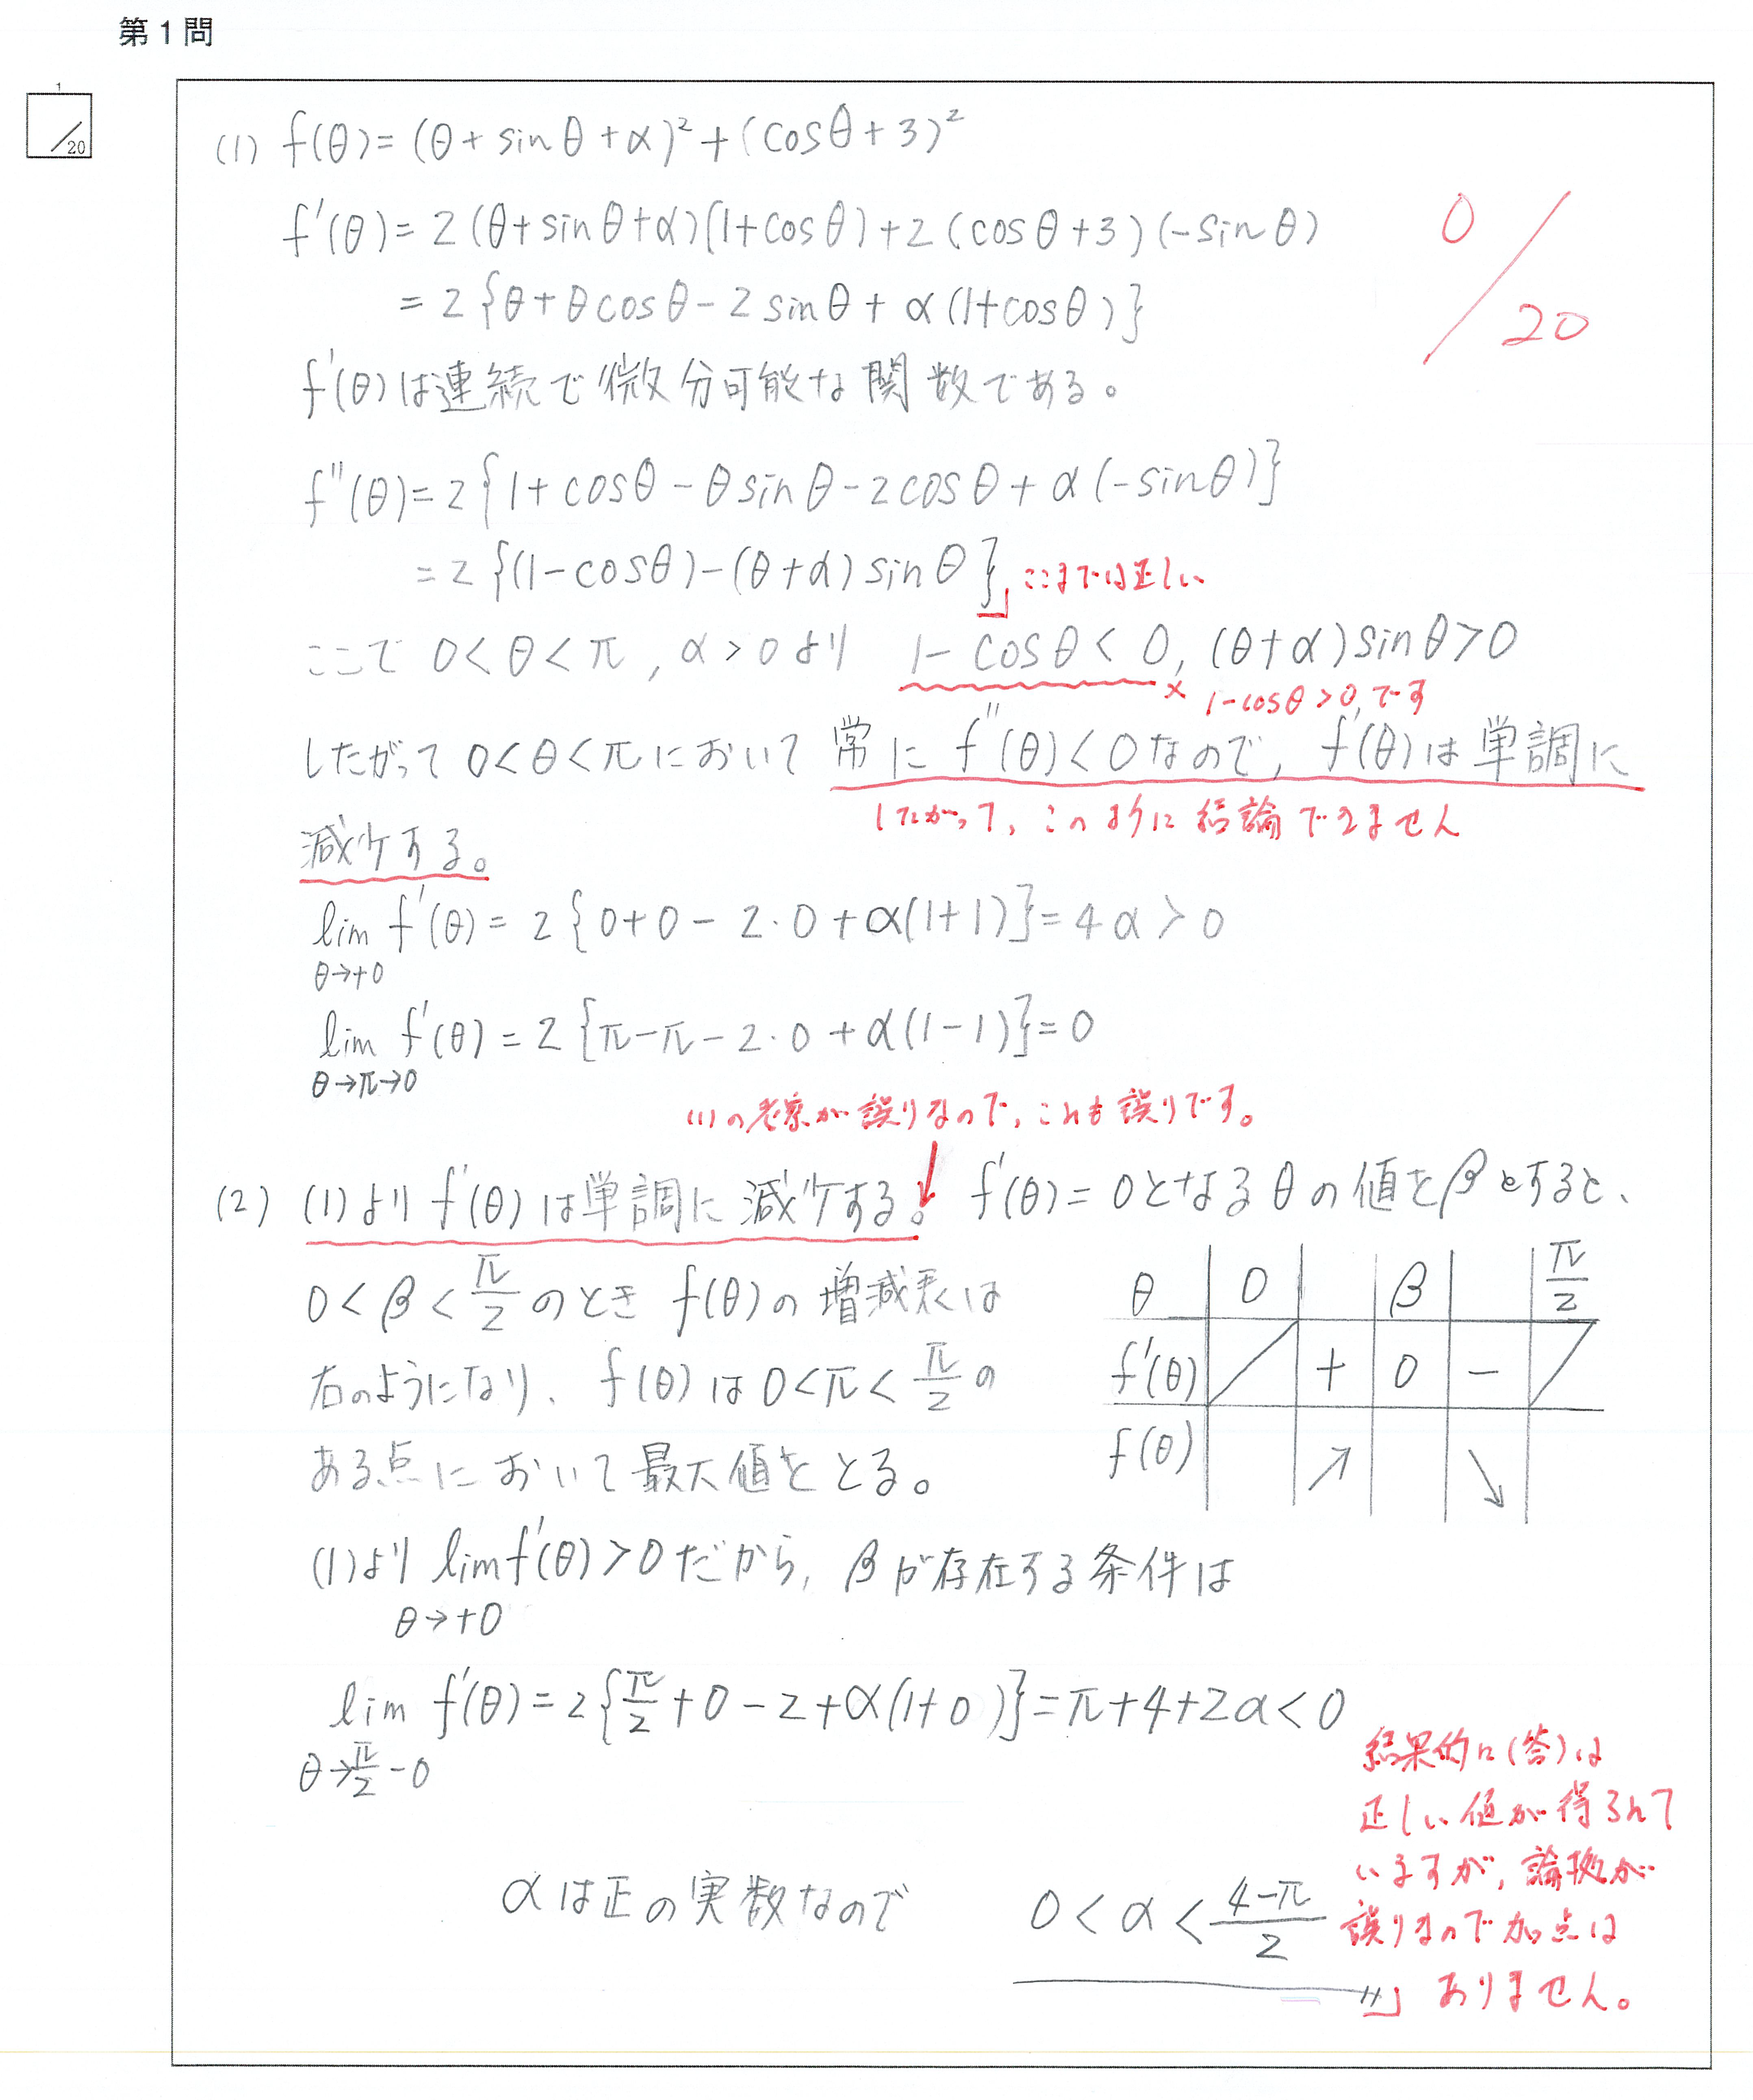 第1問
1
/20
(1) f(θ)=(θ+sinθ+α)²+(cosθ+3)²
f'(θ)=2(θ+sinθ+α)(1+cosθ)+2(cosθ+3)(-sinθ)
=2{θ+θcosθ-2sinθ+α(1+cosθ)}
0/20
f'(θ)は連続で微分可能な関数である。
f''(θ)=2{1+cosθ-θsinθ-2cosθ+α(-sinθ)}
=2{(1-cosθ)-(θ+α)sinθ}」ここまでは正しい
ここで 0<θ<π, α>0より 1-cosθ<0, (θ+α)sinθ>0
× 1-cosθ>0,です
したがって 0<θ<πにおいて常にf''(θ)<0なので, f'(θ)は単調に
したがって, このように結論できません
減少する。
lim f'(θ)=2{0+0-2・0+α(1+1)}=4α>0
θ→+0
lim f'(θ)=2{π-π-2・0+α(1-1)}=0
θ→π→0
(1)の考察が誤りなので, これも誤りです。
(2) (1)よりf'(θ)は単調に減少する。f'(θ)=0となるθの値をβとすると、
0<β<π/2のときf(θ)の増減表は
右のようになり、f(θ)は0<π<π/2の
ある点において最大値をとる。
θ 0 β π/2
f'(θ) + 0 -
f(θ) ↗ ↘
(1)より lim f'(θ)>0だから, βが存在する条件は
θ→+0
lim f'(θ)=2{π/2+0-2+α(1+0)}=π+4+2α<0
θ→π/2-0
αは正の実数なので 0<α<(4-π)/2
結果的に(答)は
正しい値が得られて
いますが, 論拠が
誤りなので加点は
ありません。